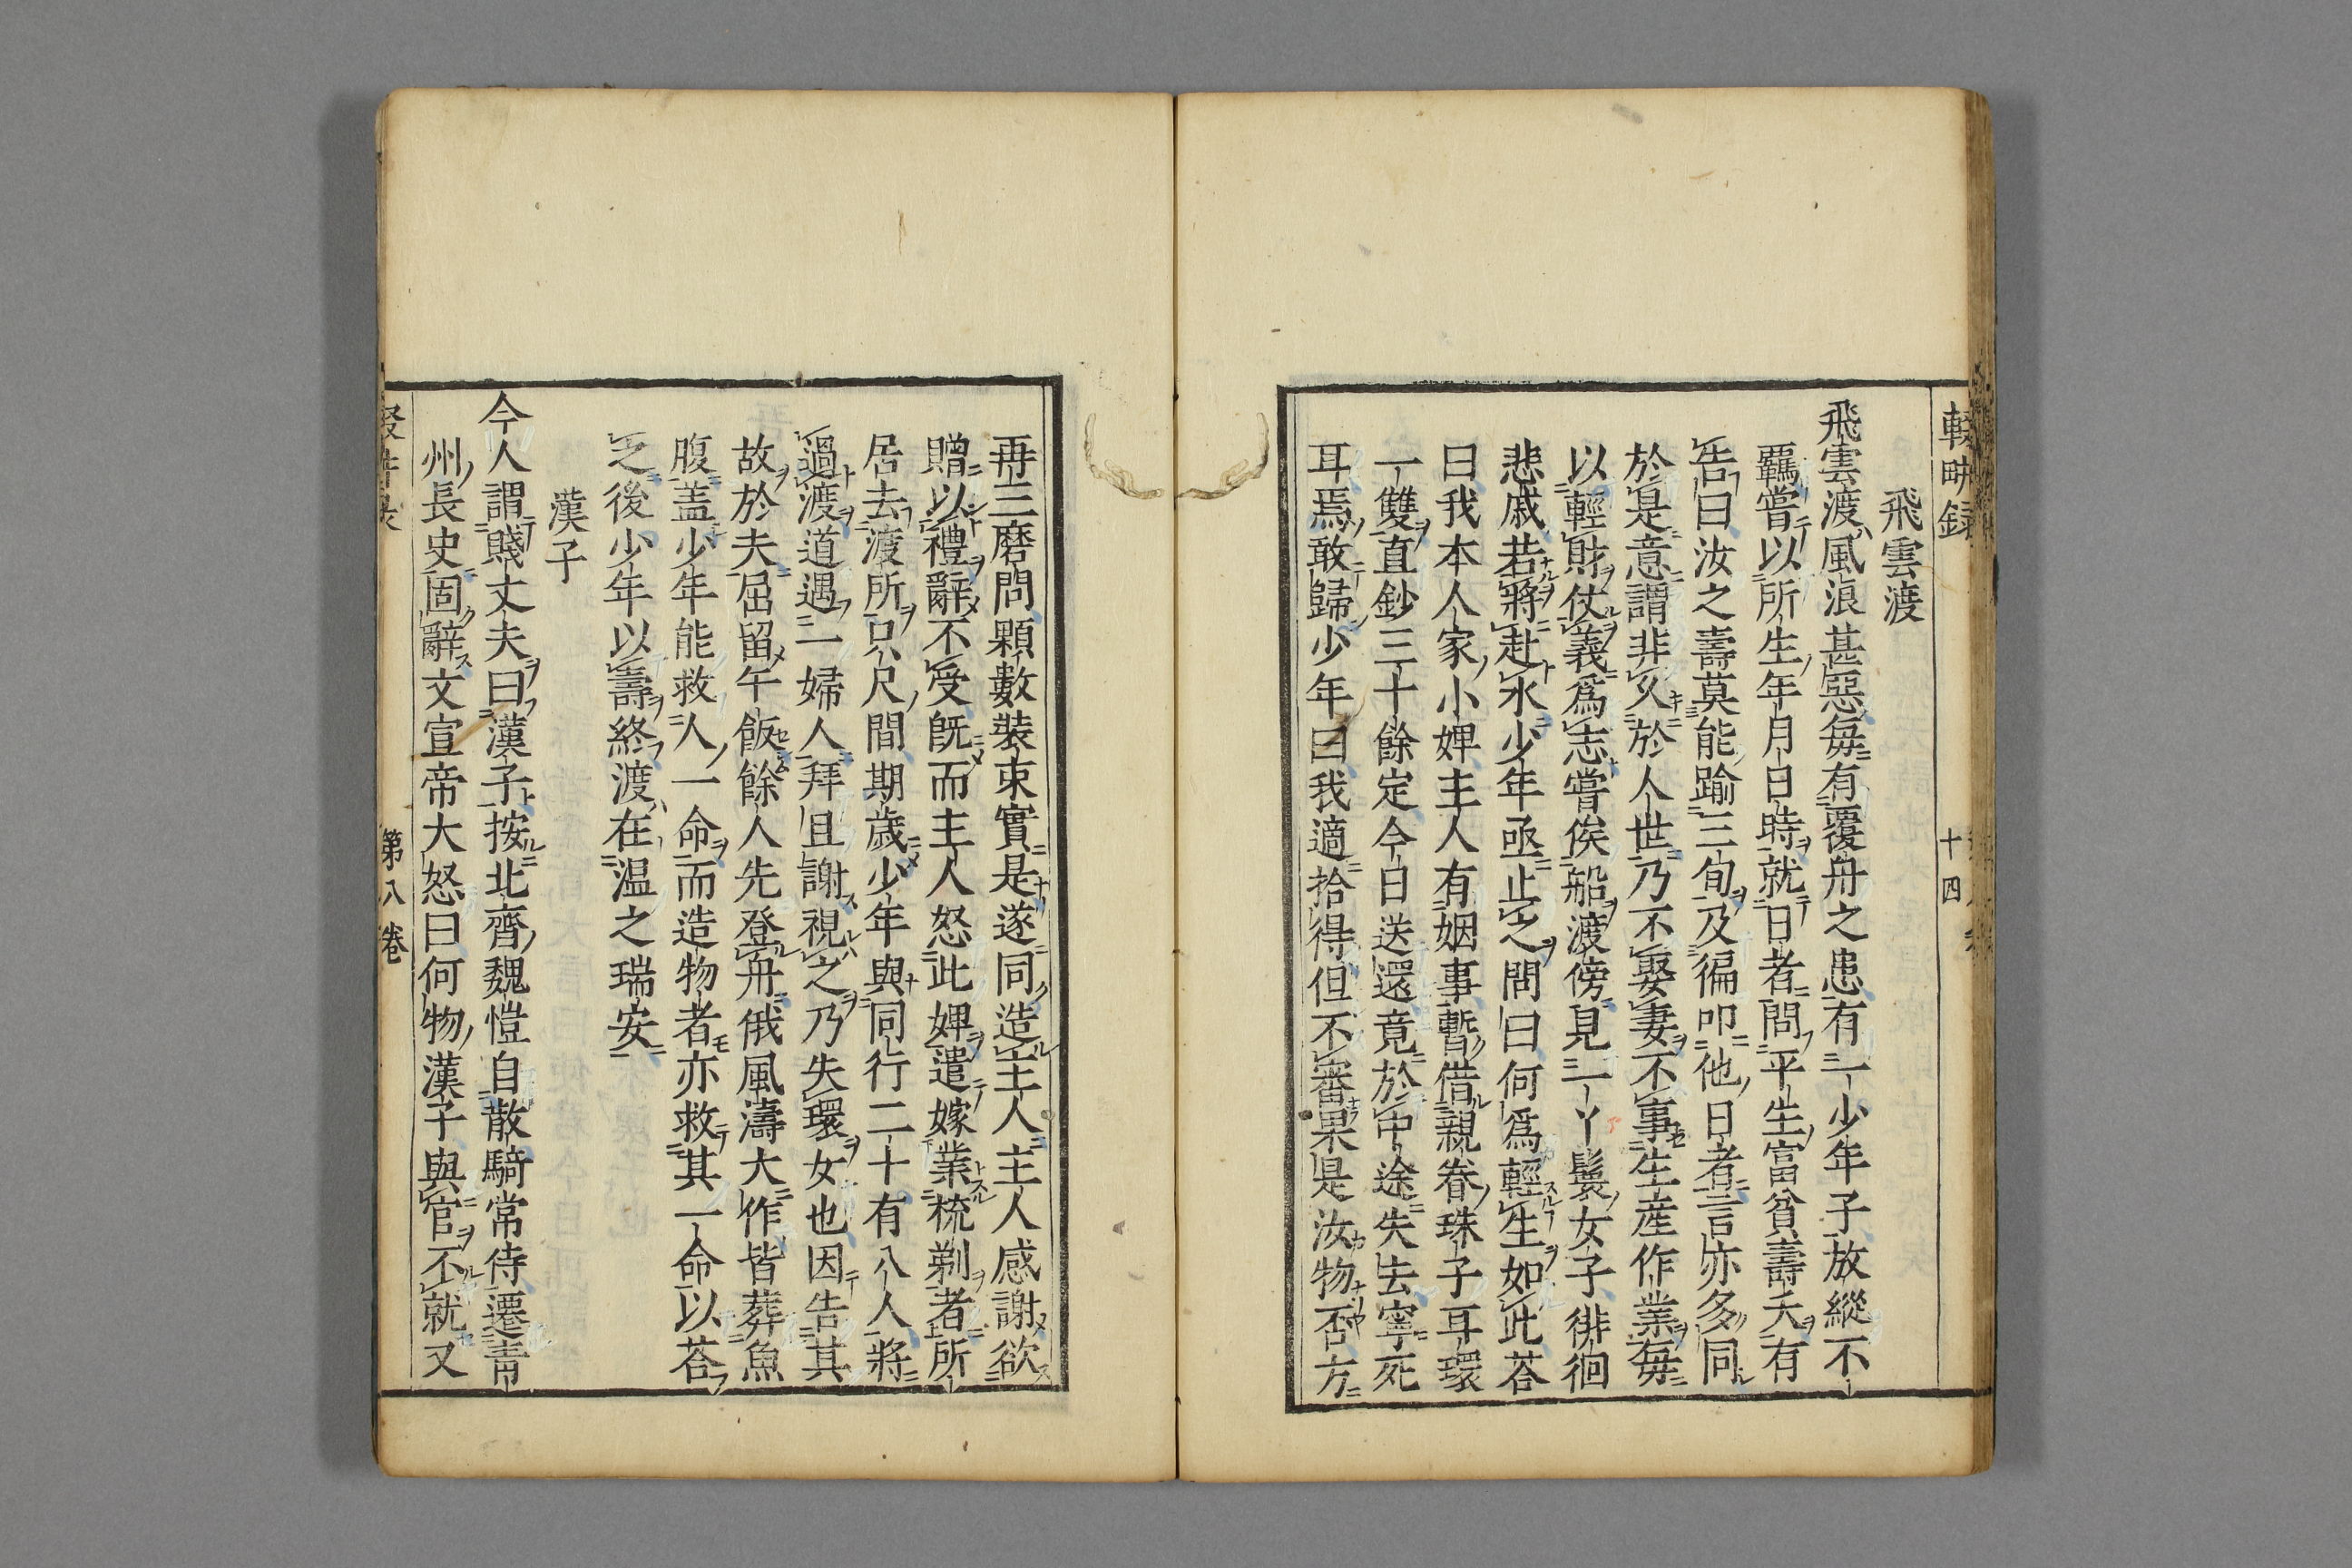 輟畊録
十四
飛雲渡
飛雲渡風浪甚惡毎有覆舟之患有一少年子放縱不
羈嘗以所生年月日時就日者問平生富貧壽夭有
告曰汝之壽莫能踰三旬及徧叩他日者言亦多同
於是意謂非久於人世乃不娶妻不事生産作業毎
以輕財仗義爲志嘗俟船渡傍見一丫鬟女子徘徊
悲戚若將赴水少年亟止之問曰何爲輕生如此荅
曰我本人家小婢主人有姻事暫借親眷珠子耳環
一雙直鈔三十餘定今日送還竟於中途失去寧死
耳焉敢歸少年曰我適拾得但不審果是汝物否方
再三磨問顆數装束實是遂同造主人主人感謝欲
贈以禮辭不受既而主人怒此婢遣嫁業梳剃者所
居去渡所只尺間期歳少年與同行二十有八人將
過渡道遇一婦人拜且謝視之乃失環女也因告其
故於夫屈留午飯餘人先登舟俄風濤大作皆葬魚
腹盖少年能救人一命而造物者亦救其一命以荅
之後少年以壽終渡在温之瑞安
漢子
今人謂賤丈夫曰漢子按北齊魏愷自散騎常侍遷青
州長史固辭文宣帝大怒曰何物漢子與官不就又
第八卷